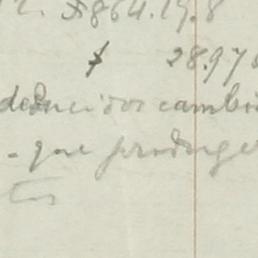 $864.19.8
$ 28.97
deducidos cambi
- que produge
tos